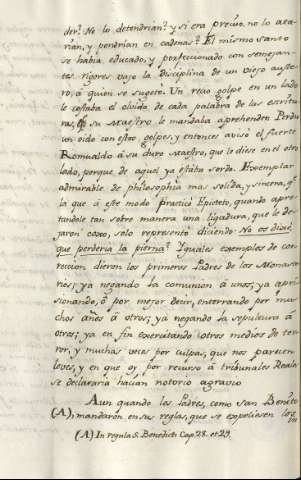 den? No lo detendrian? y si era preciso, no lo ata-
rian, y pondrian en cadenas? El mismo santo
se habia educado, y perfeccionado con semejan-
tes rigores vajo la disciplina de un viejo auste-
ro, á quien se sugetó. Un recio golpe en un lado
le costaba el olvido de cada palabra de las escritu-
ras, q su Maestro le mandaba aprehender. Perdió
un oido con estos golpes, y entonces avisó el fuerte
Romualdo á su duro Maestro, que le diese en el otro
lado, porque de aquel ya estaba sordo. Exemplar
admirable de philosophia mas solida, y sincera, q.e
la que á este modo practicó Epicteto, quando apre-
tandole tan sobre manera una ligadura, que le de-
jaron coxo, solo representó diciendo: No os dixe
que perderia la pierna? Yguales exemplos de co-
rreccion dieron los primeros Padres de los Monaste-
rios; ya negando la comunion á unos; ya apri-
sionando, ó por mejor decir, enterrando por mu-
chos años á otros; ya negando la sepultura á
otros; ya en fin exercitando otros medios de ter-
ror, y muchas veces por culpas, que nos parecen
leves, y en que oy por recurso á tribunales Reales
se declararia hacian notorio agravio
Aun quando los Padres, como san Benito
(A), mandaron en sus reglas, que se expeliesen los
in
(A) In regula S. Benedicti Cap. 28. et 29.